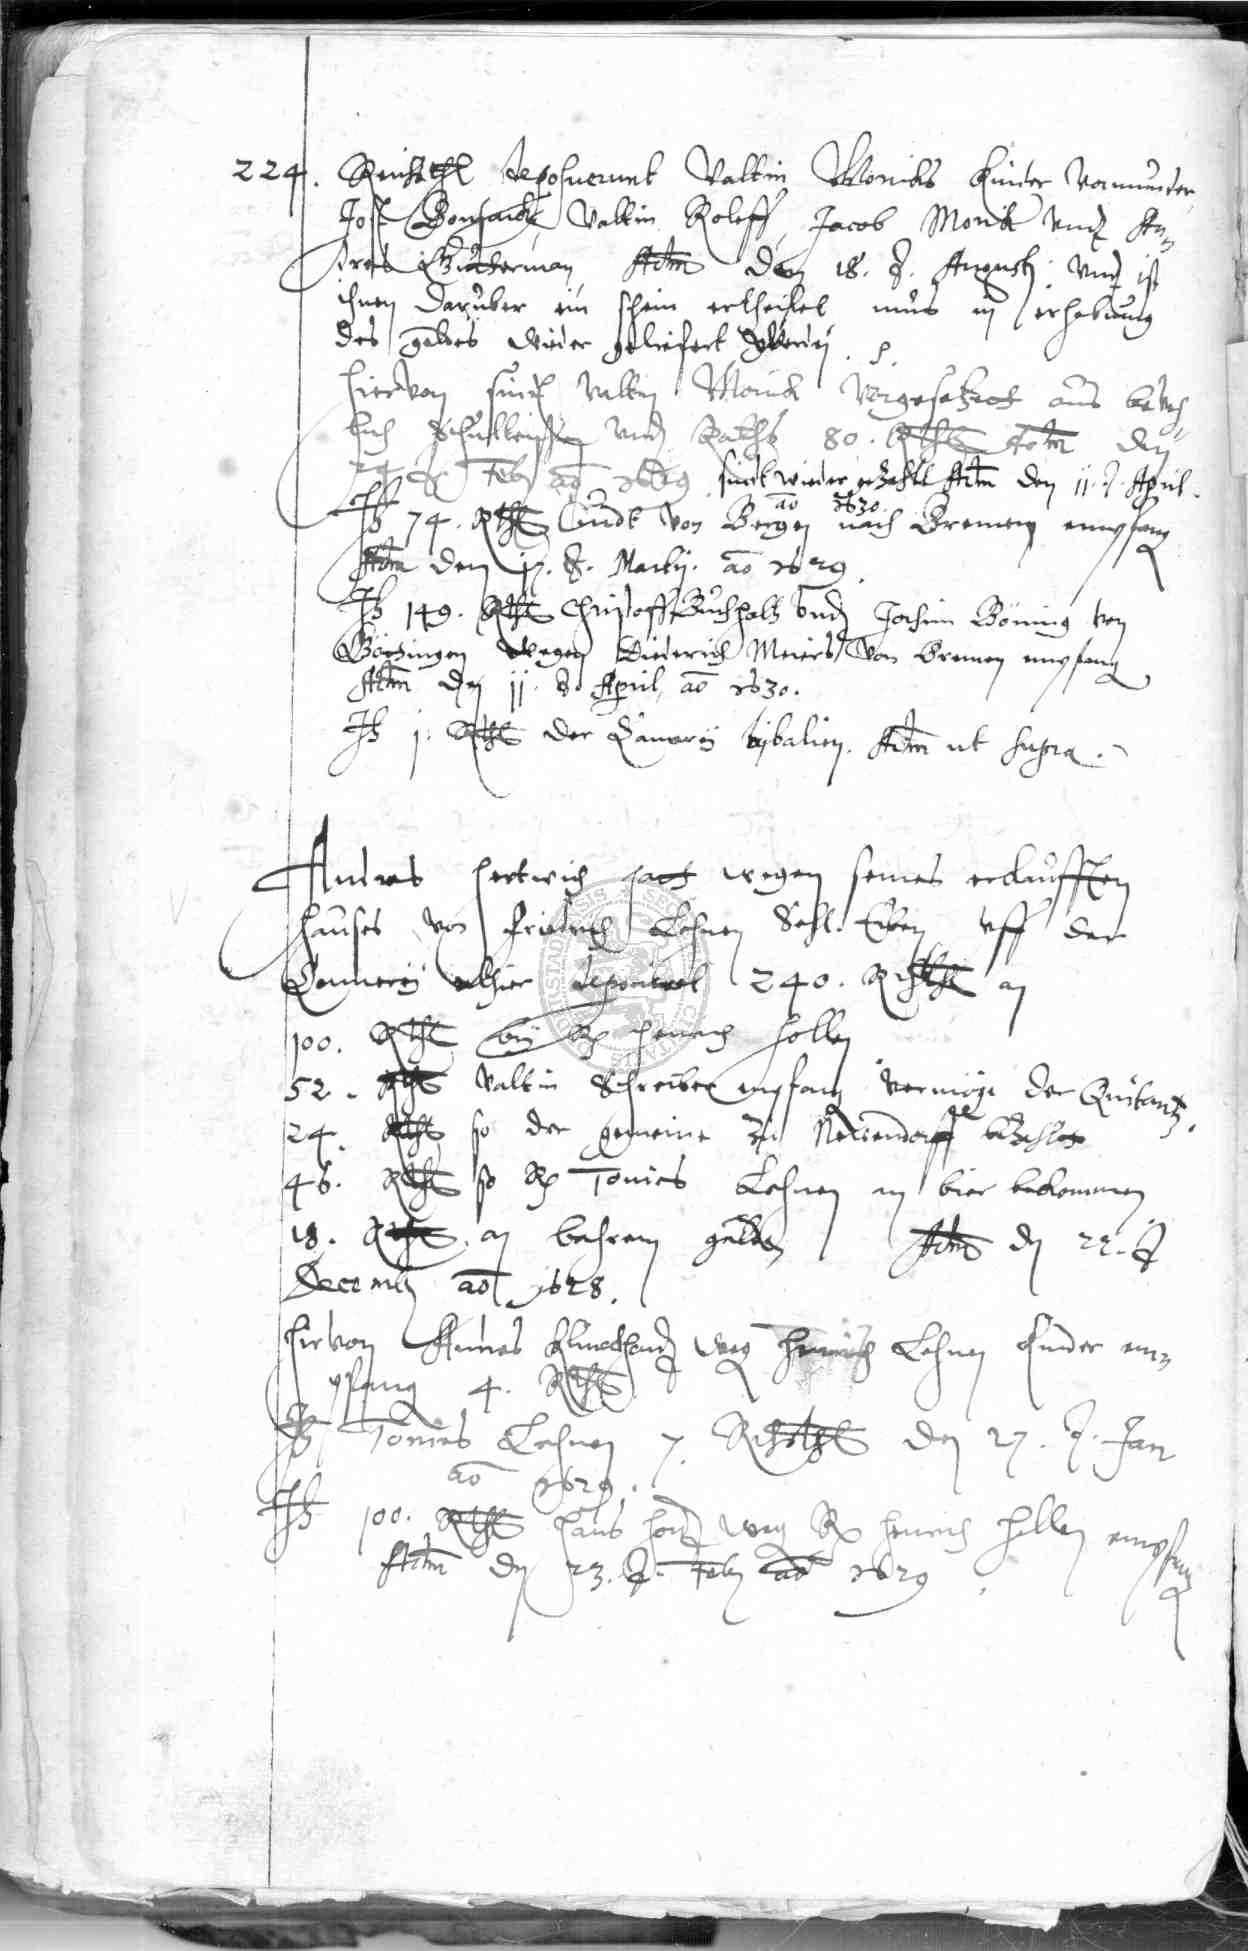 224. Reichsthl deposuerunt Valtin Moricks Kinder Vormünder,
Jost Valtin Roleff, Jacob Morick Vnd An=
dres Actum den 18. Augusti Vnd ist
ihnen darüber ein schein ertheilet mus in erhebung
des geldes wieder geliefert werden.
hiervon sindt Valtin Morick Vorgesetzet aus beueh
lich Schultteissen vnd Raths 80. Rthl Actum den
24 Feb ao 1629 sindt wieder gezahlt Actum den 11. April.
ao 1630.
It 74. Rthl Curdt von Bergen nach Bremen empfang
Actum den 17. Martij. ao 1629.
It 149. Rthl Christoff Buchholtz vnd Jochim Böning von
Göttingen wegen Diederich Meiers von Bremen empfang
Actum den 11. April, ao 1630.
It 1. Rthl der Cämerey Actum ut supra.
Andres Hertwich hatt wegen seines erkaufften
hauses von Friedrich Lehnen Sehl. Erben vff der
Cämerey alhier deponiret 240. Rthl an
100. Rthl bey H henrich hollen
52. Rthl Valtin Schreiber empfang vermöge der Quitantz.
24. Rthl so der gemeine zu Newendorff bezahlet
46. Rthl so H Tonies Lehnen an bier bekommen
18. Rthl an bahrem gelde Actum den 22.
Decemb ao 1628.
hiervon Andres weg Henrich Lehnen Kinder em=
pfang 4. Rthl
It Tonies Lehnen 7. Rthl den 27. Jan
ao 1629.
It 100. Rthl hans weg H henrich hollen empfang
Actum den 23. Feb ao 1629.
SECR CIVITATIS DVDERSTADENSIS